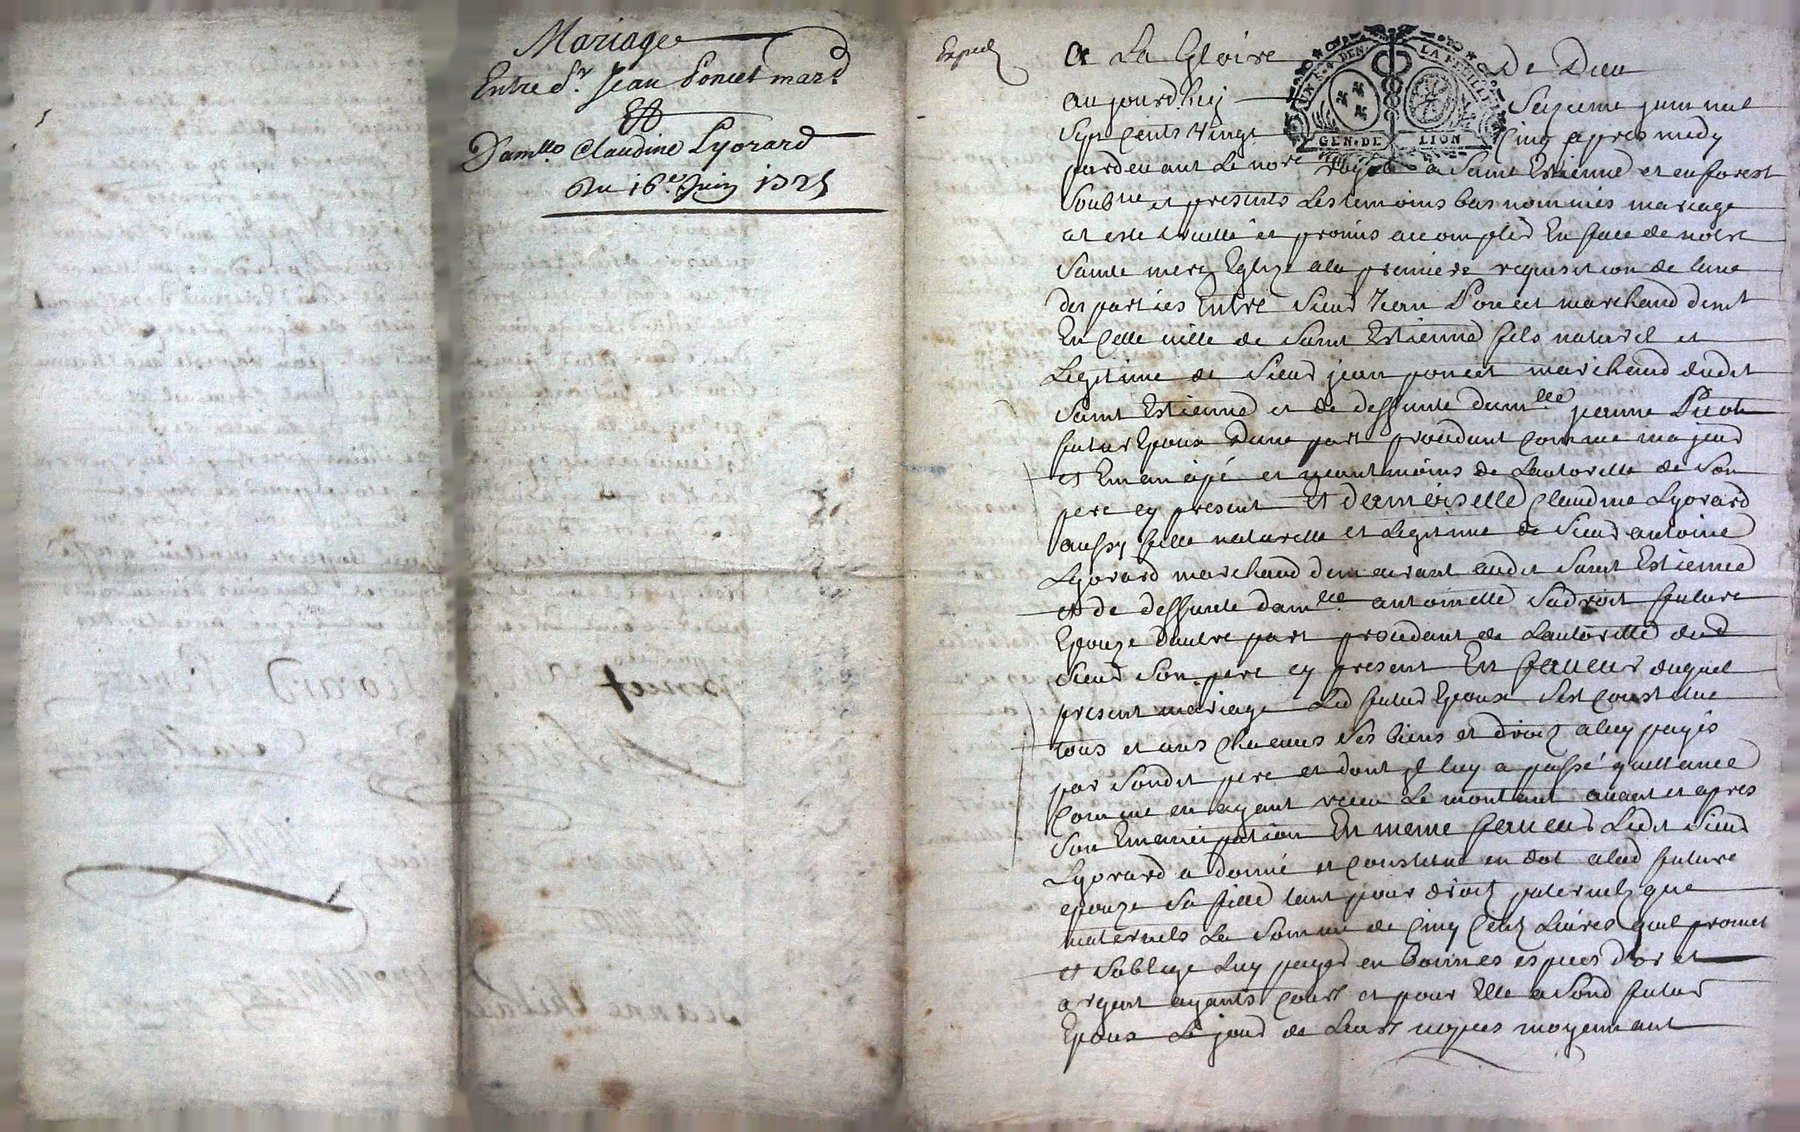 Mariage
Entre Sr. Jean Poncet mard
Et
Damlle Claudine Lyorard
Du 16e Juin 1725
Exped
A La Gloire De Dieu
aujourdhuy Seizieme juin mil
Sept Cents Vingt Cinq apres midy
pardevant Le nore royal a Saint Estienne et en forest
Soubne et presents Les temoins bas nommés mariage
at esté traitté et promis accomplir En face de notre
Sainte mere Eglize a la premiere requisition de lune
des parties Entre Sieur Jean Poncet marchand demt
En Cette ville de Saint Estienne fils naturel et
Legitime de Sieur jean poncet marchand dudit
Saint Estienne et de deffunte damlle jeanne Picot
futur Epoux dune part procedant Comme majeur
et Emancipé et neantmoins de Lautorité de Son
pere cy present Et damoiselle Claudine Lyorard
aussy fille naturelle et Legitime de Sieur antoine
Lyorard marchand demeurant audit Saint Estienne
et de deffunte damlle antoinette Sadroit future
Epouze dautre part procedant de Lautorité dud
Sieur Son pere cy present En faveur duquel
present mariage Led futur Epoux Sest Constitué
tous et uns Chacuns Ses biens et droits a luy payés
par Sondit pere et dont Il luy a passé quittance
Comme en ayant receu Le montant avant et apres
Son Emancipation En meme faveur Ledit Sieur
Lyorard a donné et Constitué en dot a lad future
epouze Sa fille tant pour droits paternels que
maternels La Somme de Cinq Cents Livres quil promet
et Soblige Luy payer en bonnes especes dor et
argent ayants Cours et pour Elle a Sond futur
Epoux Le jour de Leurs nopces moyennant
GEN. DE LION
Poncet